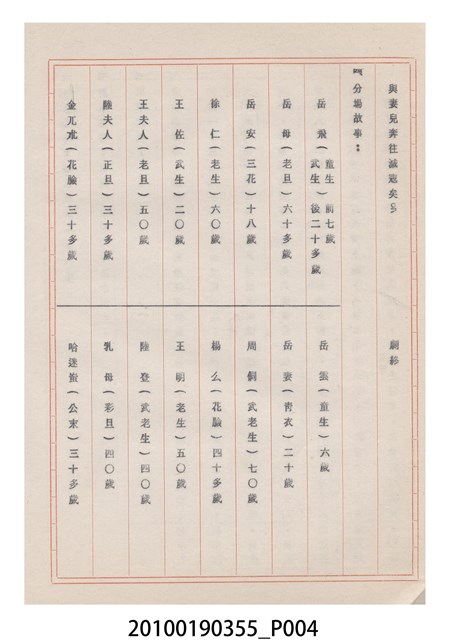 與妻兒奔往誠寇矣。 劇終
四分場故事：
岳 飛（童生 武生） 前七歲 後二十多歲
岳 雲（童生）六歲
岳 母（老旦）六十多歲
岳 妻（青衣）二十歲
岳 安（三花）十八歲
周 侗（武老生）七〇歲
徐 仁（老生）六〇歲
楊 么（花臉）四十多歲
王 佐（武生）二〇歲
王 明（老生）五〇歲
王夫人（老旦）五〇歲
陸 登（武老生）四〇歲
陸夫人（正旦）三十多歲
乳 母（彩旦）四〇歲
金兀朮（花臉）三十多歲
哈迷蚩（公末）三十多歲
20100190355_P004